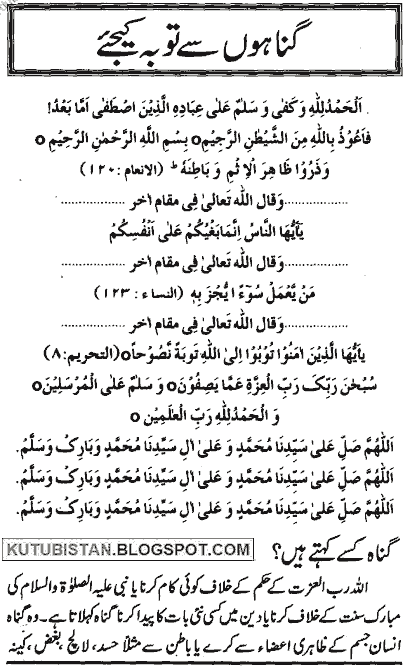 گناہوں سے توبہ کیجئے
اَلْحَمْدُلِلّٰهِ وَ كَفٰى وَ سَلٰمٌ عَلٰى عِبَادِهِ الَّذِيْنَ اصْطَفٰى اَمَّا بَعْدُ!
فَاَعُوْذُ بِاللّٰهِ مِنَ الشَّيْطٰنِ الرَّجِيْمِ○ بِسْمِ اللّٰهِ الرَّحْمٰنِ الرَّحِيْمِ○
وَ ذَرُوْا ظَاهِرَ الْاِثْمِ وَ بَاطِنَهٗ ؕ (الانعام : ۱۲۰)
................وَقال الله تعالىٰ فِى مقام اٰخر ................
يٰۤاَيُّهَا النَّاسُ اِنَّمَا بَغْيُكُمْ عَلٰى اَنْفُسِكُمْ
................وَقال الله تعالىٰ فِى مقام اٰخر ................
مَنْ يَّعْمَلْ سُوْٓءًا يُّجْزَ بِهٖ (النساء : ۱۲۳)
................وَقال الله تعالىٰ فِى مقام اٰخر ................
يٰۤاَيُّهَا الَّذِيْنَ اٰمَنُوْا تُوْبُوْا اِلَى اللّٰهِ تَوْبَةً نَّصُوْحًا○ (التحريم:۸)
سُبْحٰنَ رَبِّكَ رَبِّ الْعِزَّةِ عَمَّا يَصِفُوْنَ○ وَ سَلٰمٌ عَلَى الْمُرْسَلِيْنَ○
وَ الْحَمْدُلِلّٰهِ رَبِّ الْعٰلَمِيْنَ ○
اَللّٰهُمَّ صَلِّ عَلٰى سَيِّدِنَا مُحَمَّدٍ وَ عَلٰى اٰلِ سَيِّدِنَا مُحَمَّدٍ وَبَارِكْ وَسَلِّمْ.
اَللّٰهُمَّ صَلِّ عَلٰى سَيِّدِنَا مُحَمَّدٍ وَ عَلٰى اٰلِ سَيِّدِنَا مُحَمَّدٍ وَبَارِكْ وَسَلِّمْ.
اَللّٰهُمَّ صَلِّ عَلٰى سَيِّدِنَا مُحَمَّدٍ وَ عَلٰى اٰلِ سَيِّدِنَا مُحَمَّدٍ وَبَارِكْ وَسَلِّمْ.
گناہ کسے کہتے ہیں؟
KUTUBISTAN.BLOGSPOT.COM
اللہ رب العزت کے حکم کے خلاف کوئی کام کرنا یا نبی علیہ الصلوٰۃ والسلام کی
مبارک سنت کے خلاف کرنا یا دین میں کسی نئی بات کا پیدا کرنا گناہ کہلاتا ہے۔ وہ گناہ
انسان جسم کے ظاہری اعضاء سے کرے یا باطن سے مثلاً حسد، لالچ، بغض، کینہ